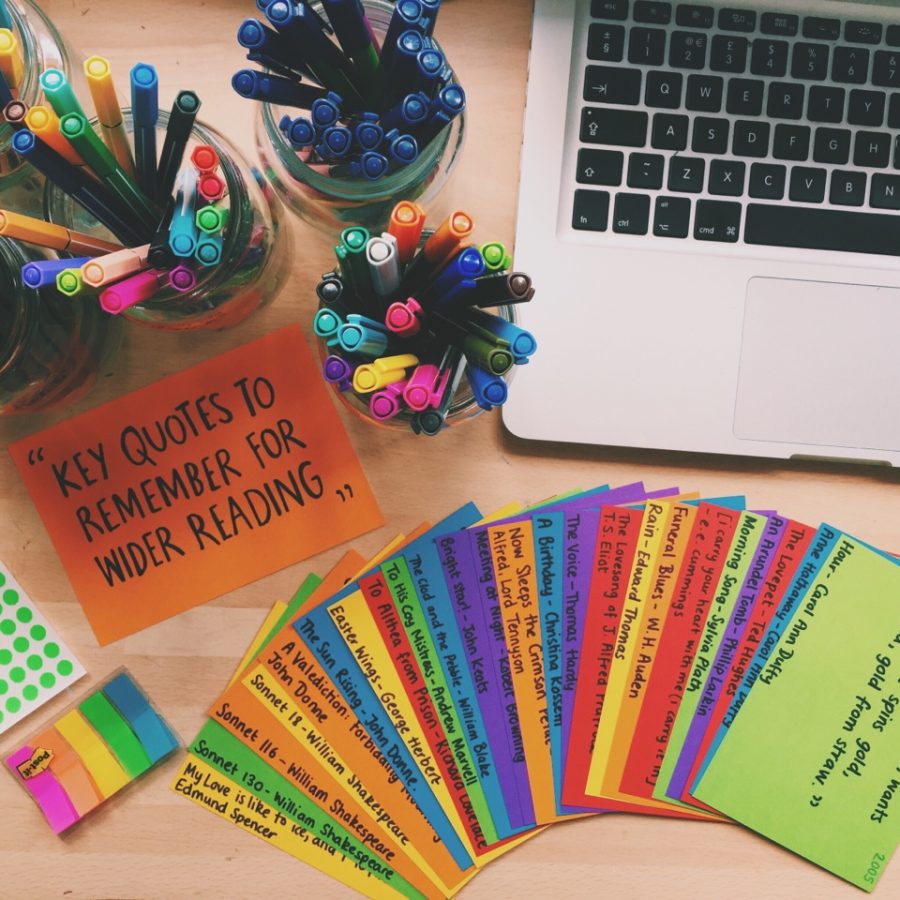 esc
± § ! 1 @ 2 € £ 3 $ 4 % 5 ^ 6 & 7
Q W E R T Y
A S D F G H
~ ` Z X C V B N
fn ctrl alt cmd ⌘
“KEY QUOTES TO
REMEMBER FOR
WIDER READING”
Post-it
My Love is like to ice, and I
Edmund Spencer
Sonnet 130 - William Shakespeare
Sonnet 116 - William Shakespeare
Sonnet 18 - William Shakespeare
A Valediction: Forbidding
John Donne
The Sun Rising - John Donne.
Easter Wings - George Herbert
To Althea from Prison - Richard Lovelace
To His Coy Mistress - Andrew Marvell
The clod and the Pebble - William Blake
Bright star! - John Keats
Meeting at Night - Robert Browning
Now Sleeps the Crimson Petal
Alfred, Lord Tennyson
A Birthday - Christina Rossetti
The Voice - Thomas Hardy
The Lovesong of J. Alfred Prufrock
T.S. Eliot
Rain - Edward Thomas
Funeral Blues - W. H. Auden
[i carry your heart with me (i carry it in]
- e.e. cummings
Morning Song - Sylvia Plath
An Arundel Tomb - Philip Larkin
The Lovepet - Ted Hughes
Anne Hathaway - Carol Ann Duffy
Hour - Carol Ann Duffy
wants
spins gold,
gold from straw.”
2005